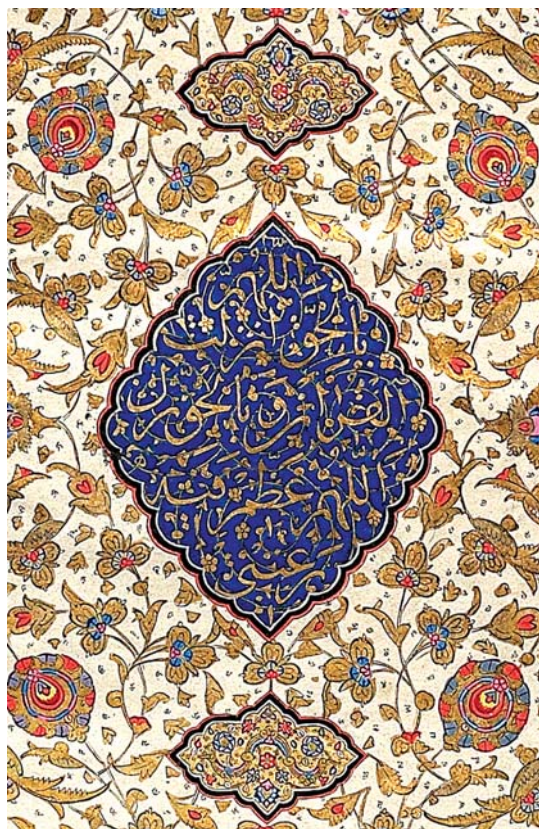 اللهم
بالحق انزلت
القران وبالحق نزل
اللهم عظم فيه
رغبتي